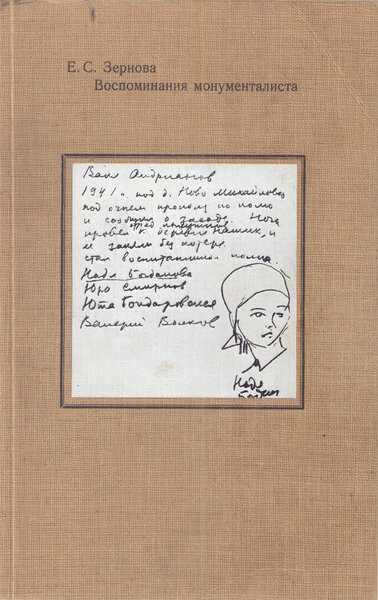 Е. С. Зернова
Воспоминания монументалиста
Ваня Андрианов
1941 г. под д. Ново Михайловка
под огнем прополз по полю
и сообщил о засаде. Ночью
провел отряд к деревне наших, и
ее заняли без потерь
стал воспитанником полка
Надя Богданова
Юра Смирнов
Юта Бондаровская
Валерий Волков
Надя